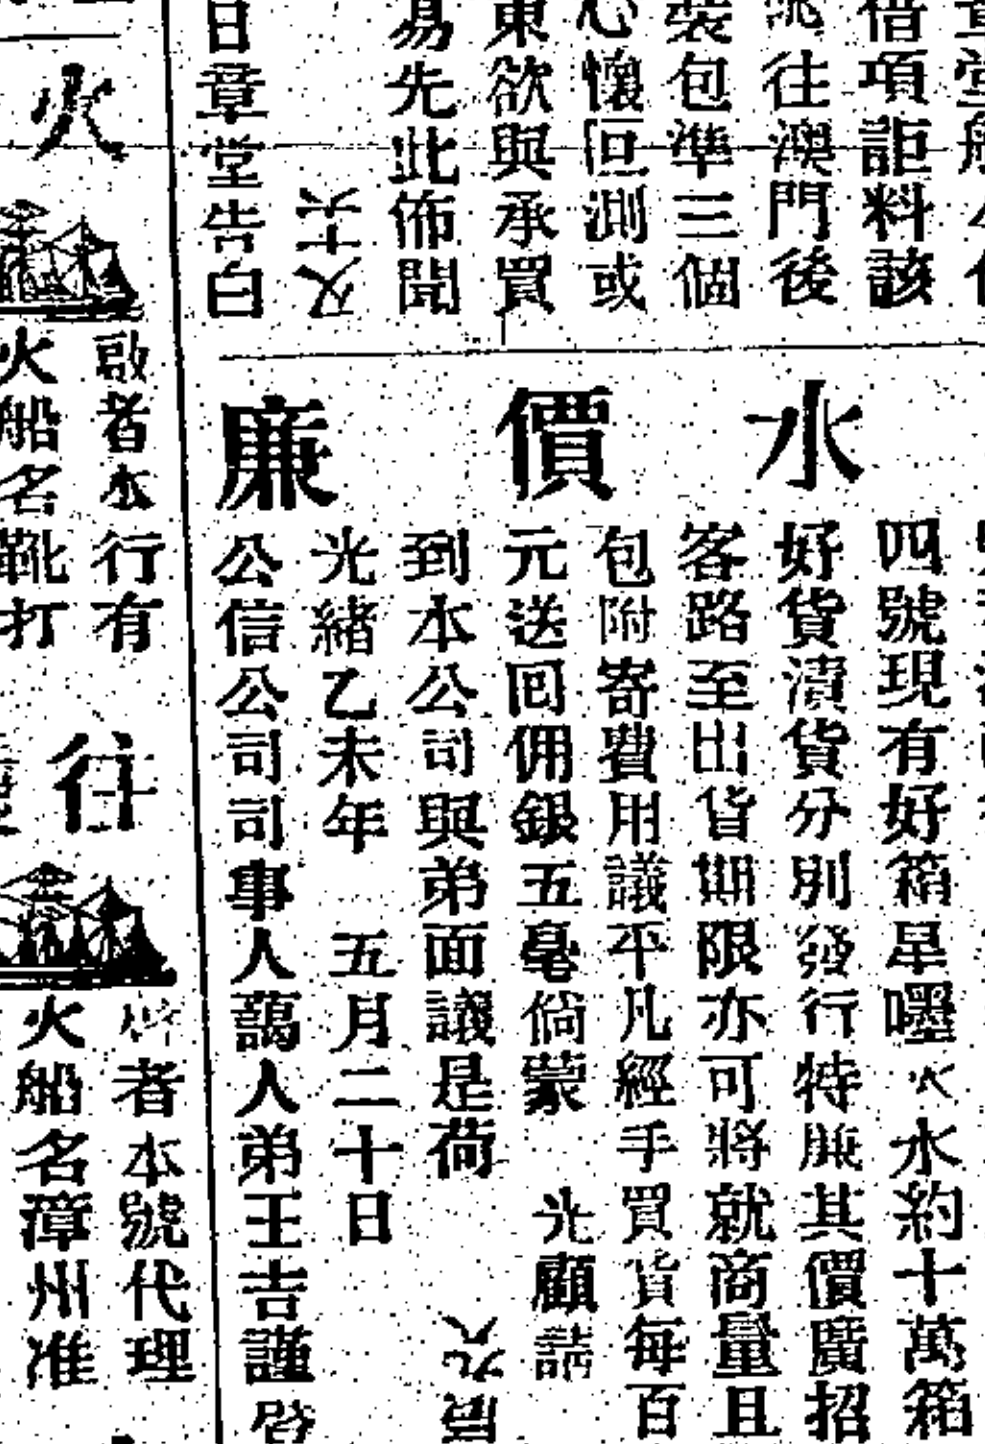 借項詎料該
往澳門後
裝包準三個
心懷叵測或
東欲與承買
易先此佈聞
六十又
日章堂告白
水價廉
四號現有好箱
火水約十萬箱
好貨瀆貨分別發行特廉其價廣招
客路至出貨期限亦可將就商量且
包附寄費用議平凡經手買貨每百
元送回佣銀五毫倘蒙 光顧請
到本公司與弟面議是荷
光緒乙未年 五月二十日
公信公司司事人藹人弟王吉謹啓
火
啟者本行有
火船名靴打
往
者本號代理
火船名漳州准